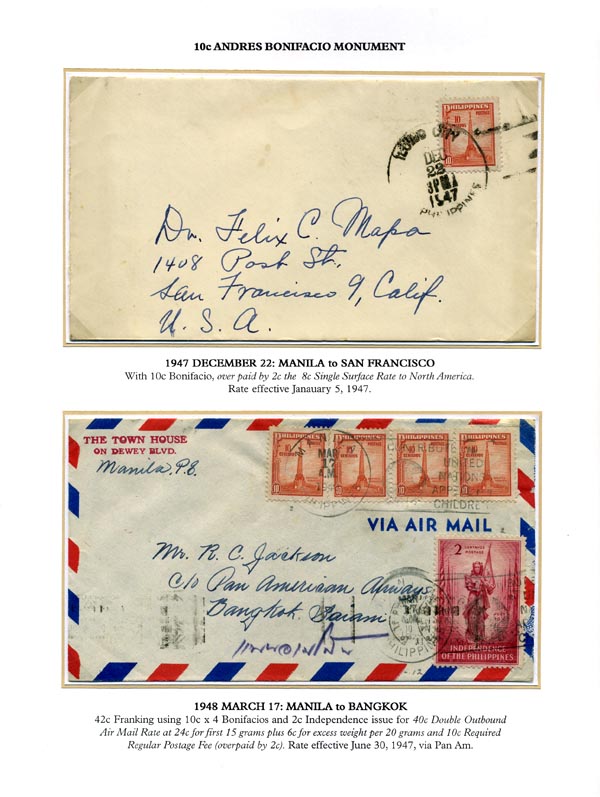 10c ANDRES BONIFACIO MONUMENT
PHILIPPINES
10 CENTAVOS POSTAGE
10
CITY
DEC
22
1947
PHILIPPINES
Dr. Felix C. Mapa
1408 Post St.
San Francisco 9, Calif.
U. S. A.
1947 DECEMBER 22: MANILA to SAN FRANCISCO
With 10c Bonifacio, over paid by 2c the 8c Single Surface Rate to North America.
Rate effective Janauary 5, 1947.
THE TOWN HOUSE
ON DEWEY BLVD.
Manila, P.I.
PHILIPPINES PHILIPPINES PHILIPPINES PHILIPPINES
10 10 10 10
MAR
17
UNITED
CHILDREN
VIA AIR MAIL
Mr. R. C. Jackson
c/o Pan American Airways
Bangkok. Saiam
2 CENTAVOS
POSTAGE
INDEPENDENCE
OF THE PHILIPPINES
1948 MARCH 17: MANILA to BANGKOK
42c Franking using 10c x 4 Bonifacios and 2c Independence issue for 40c Double Outbound
Air Mail Rate at 24c for first 15 grams plus 6c for excess weight per 20 grams and 10c Required
Regular Postage Fee (overpaid by 2c). Rate effective June 30, 1947, via Pan Am.